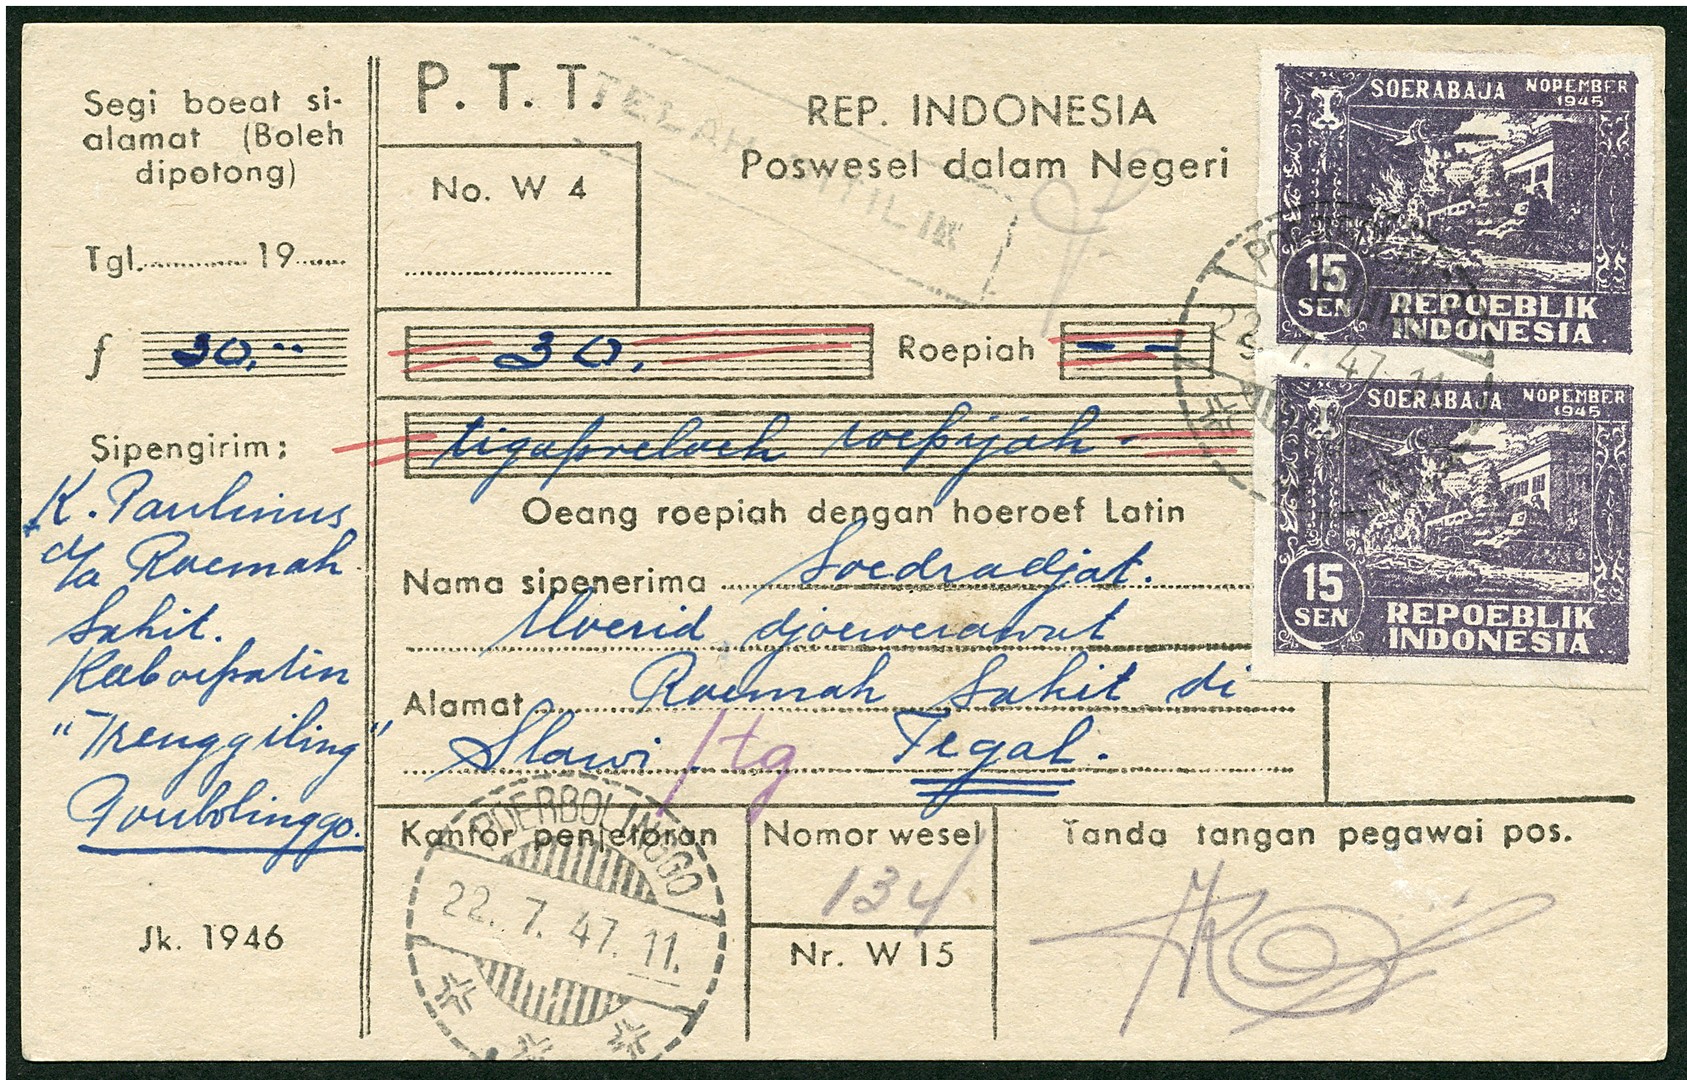 Segi boeat si-
alamat (Boleh
dipotong)
Tgl. 19
f 30,--
Sipengirim:
K. Paulinus
d/a Roemah
Sakit.
Kaboepatin
"Trenggiling"
Poerbolinggo.
Jk. 1946
P. T. T.
No. W 4
TELAH DITILIK
REP. INDONESIA
Poswesel dalam Negeri
30, Roepiah - -
tigapoeloeh roepijah
Oeang roepiah dengan hoeroef Latin
Nama sipenerima Soedradjat.
Moerid djoeroerawat
Alamat Roemah Sakit di
Slawi /tg Tegal.
Kantor penjetoran
POERBOLINGGO
22. 7. 47. 11.
Nomor wesel
134
Nr. W 15
Tanda tangan pegawai pos.
SOERABAJA NOPEMBER
1945
15
SEN
REPOEBLIK
INDONESIA
22. 7. 47. 11
SOERABAJA NOPEMBER
1945
15
SEN
REPOEBLIK
INDONESIA